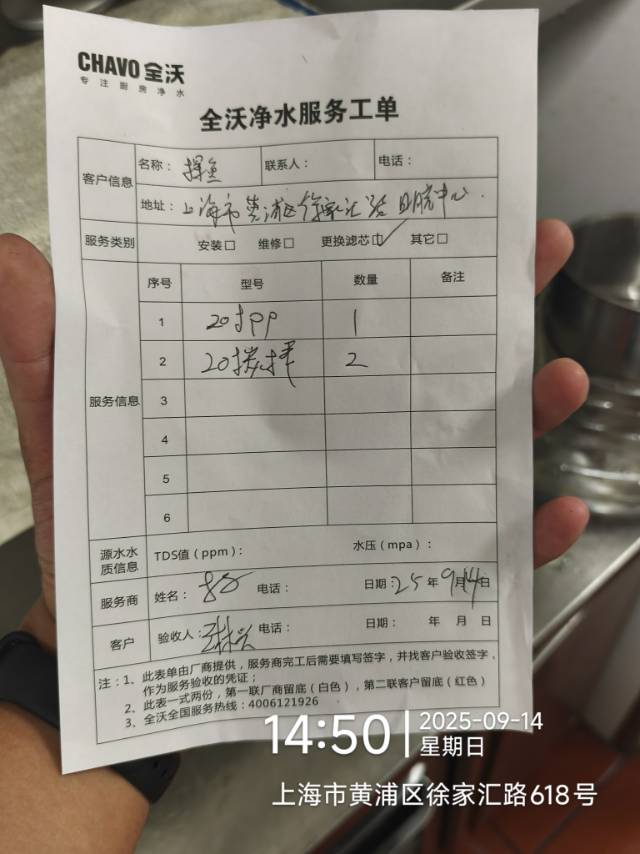 CHAVO 全沃
专 注 厨 房 净 水
全沃净水服务工单
客户信息 名称: 探鱼 联系人: 电话:
地址: 上海市黄浦区徐家汇路日月光中心.
服务类别 安装□ 维修□ 更换滤芯□✓ 其它□
序号 型号 数量 备注
1 20寸PP 1
2 20寸 2
服务信息 3
4
5
6
源水水质信息 TDS值(ppm): 水压(mpa):
服务商 姓名: 电话: 日期: 25年9月14日
客户 验收人: 电话: 日期: 年 月 日
注:1、此表单由厂商提供,服务商完工后需要填写签字,并找客户验收签字,
作为服务验收的凭证;
2、此表一式两份,第一联厂商留底(白色),第二联客户留底(红色)
3、全沃全国服务热线:4006121926
14:50 2025-09-14
星期日
上海市黄浦区徐家汇路618号